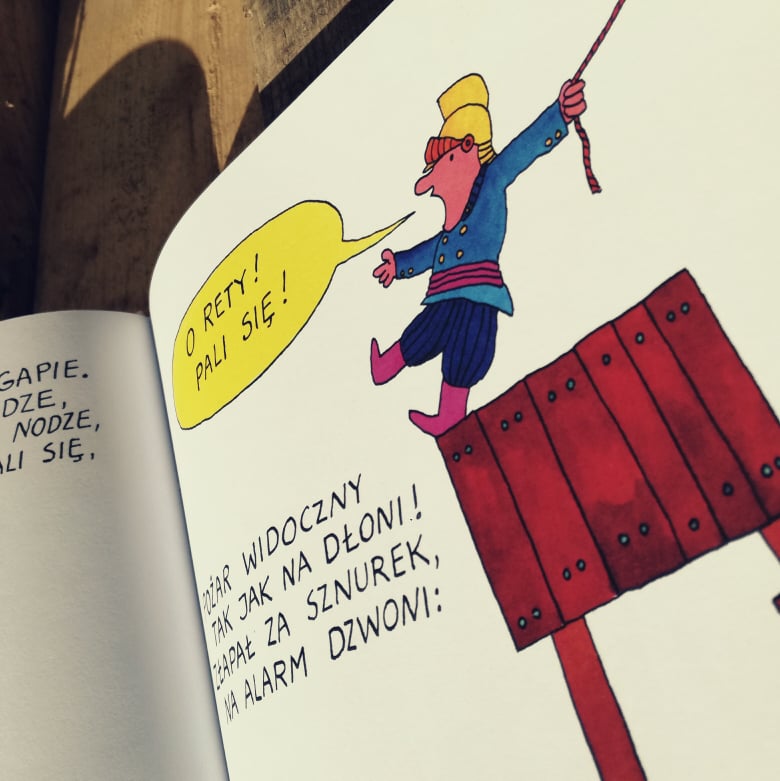 GAPIE.
DZE,
NODZE,
ALI SIĘ,
O RETY!
PALI SIĘ!
POŻAR WIDOCZNY
TAK JAK NA DŁONI!
ZŁAPAŁ ZA SZNUREK,
NA ALARM DZWONI: